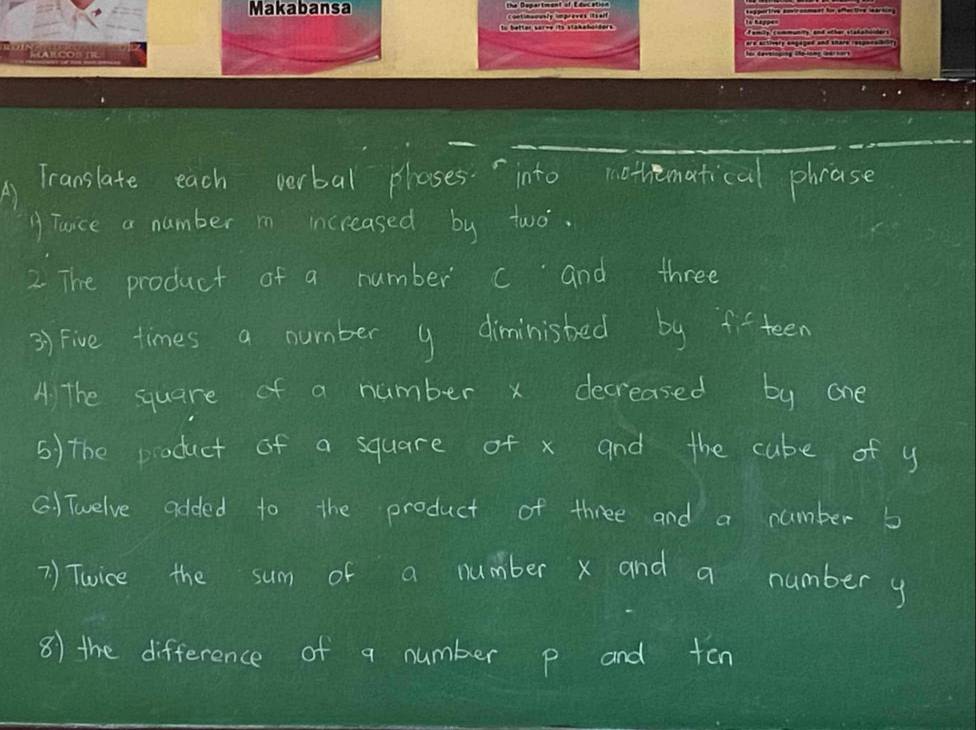 MARCOS JR.
Makabansa
the Department of Education
continuously improves itself
to better serve its stakeholders.
supportive environment for effective learning
to happen
Family, community, and other stakeholders
are actively engaged and share responsibility
for developing life-long learners
A) Translate each verbal phases into mathematical phrase
1) Twice a number m increased by two.
2. The product of a number c and three
3) Five times a number y diminisbed by fifteen
4.) The square of a number x decreased by one
5.) The product of a square of x and the cube of y
6.) Twelve added to the product of three and a number b
7.) Twice the sum of a number x and a number y
8) the difference of a number p and ten